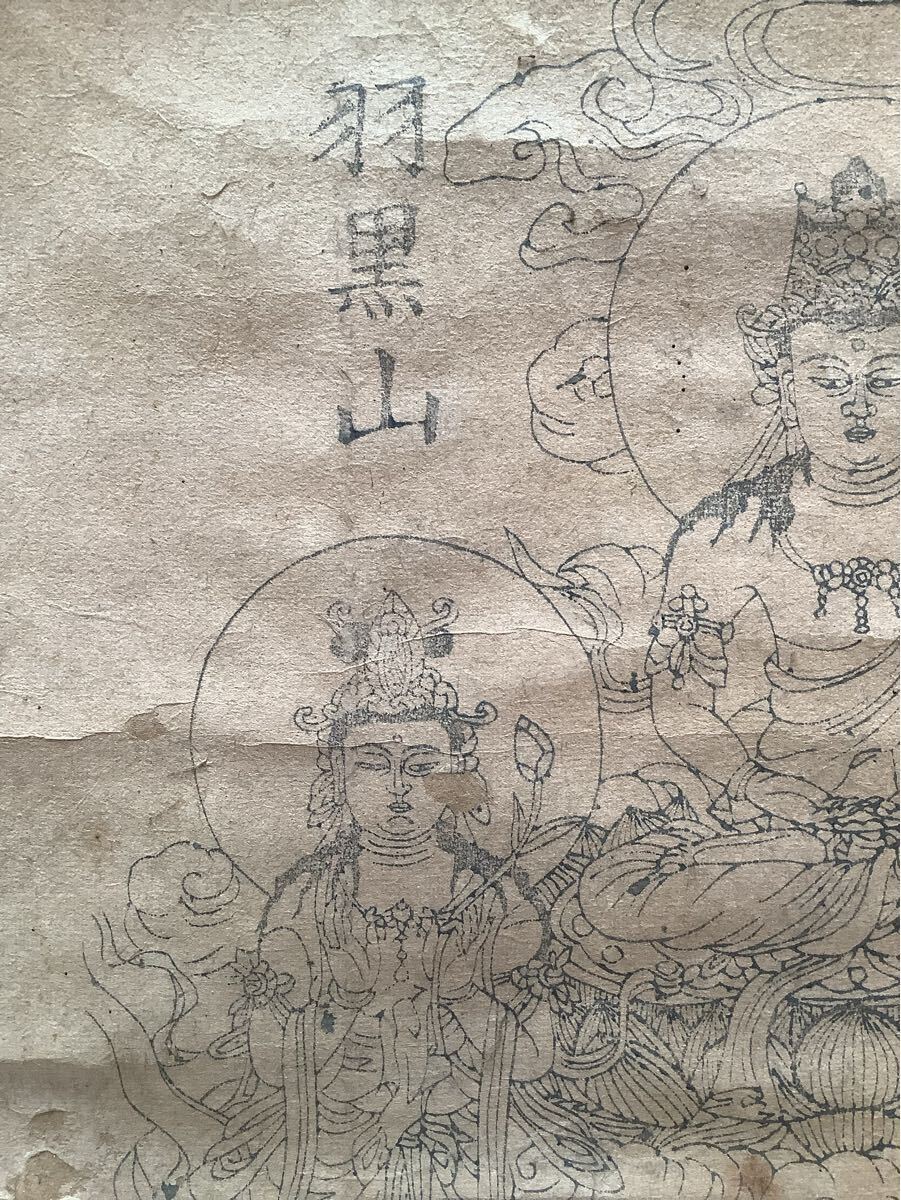 羽黒山